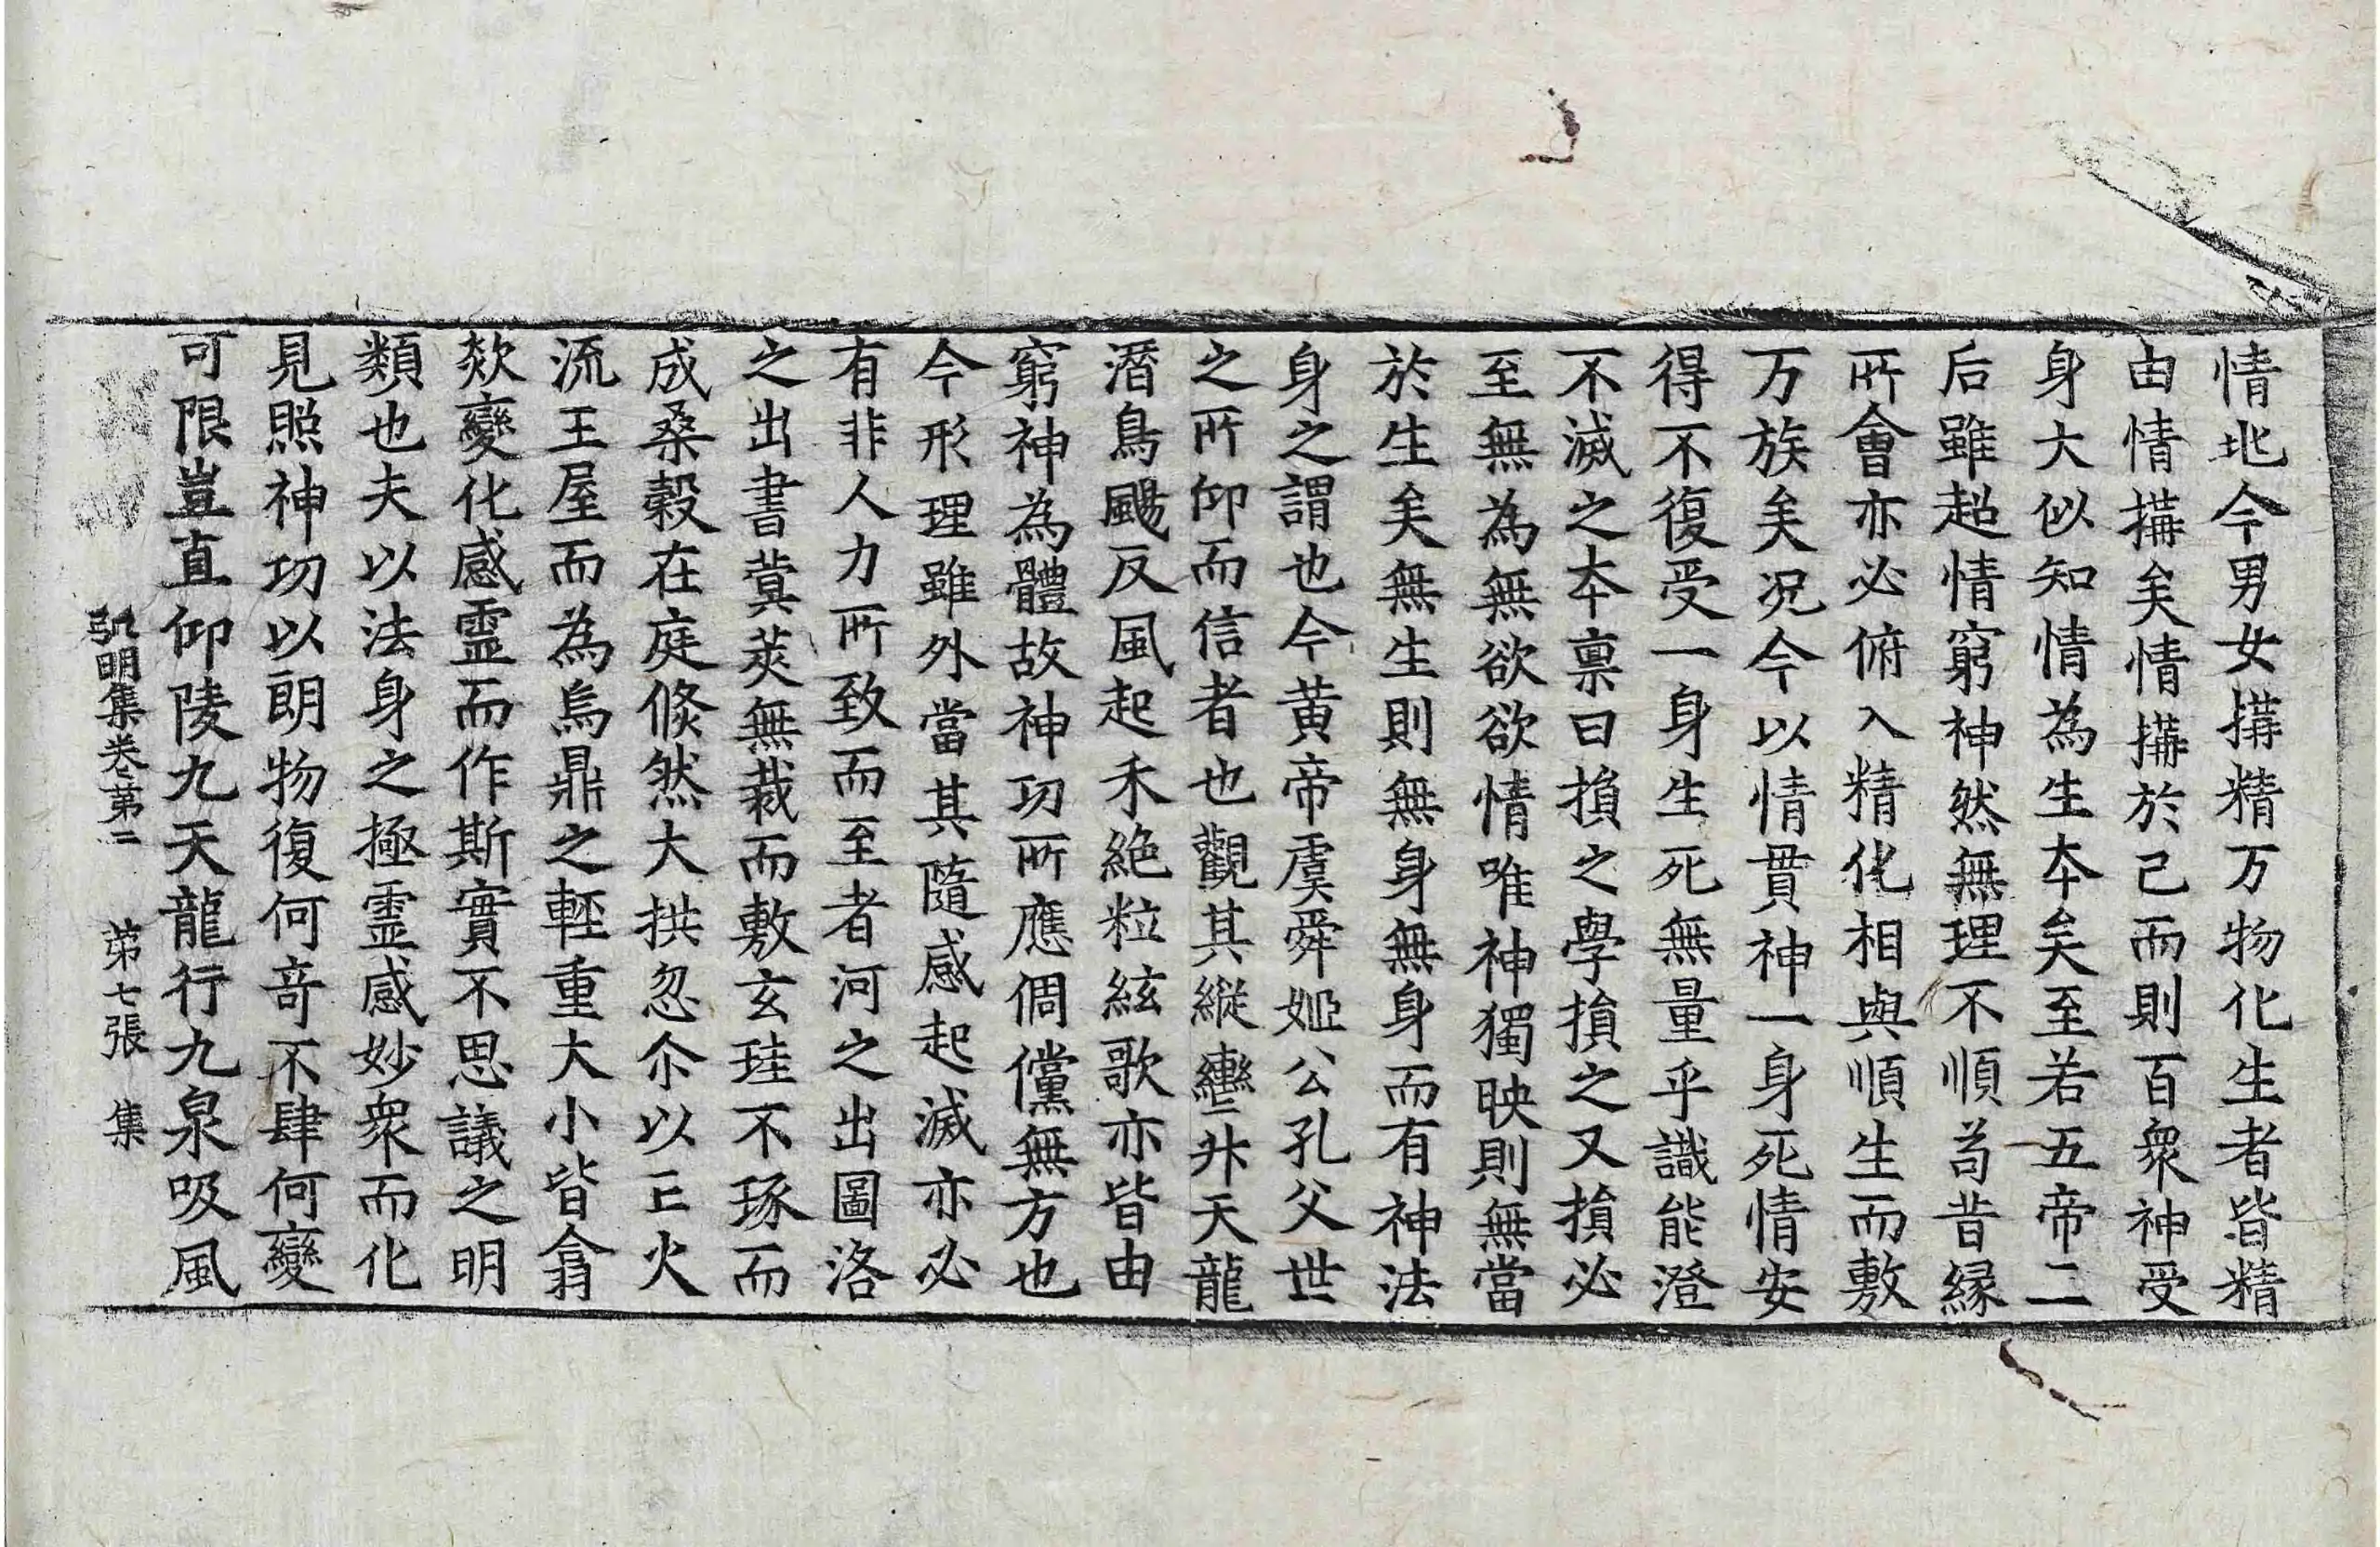 情地今男女搆精万物化生者皆精
由情搆矣情搆於己而則百衆神受
身大似知情為生本矣至若五帝二
后雖超情窮神然無理不順苟昔縁
所會亦必俯入精化相與順生而敷
万族矣况今以情貫神一身死情安
得不復受一身生死無量乎識能澄
不滅之本禀日損之學損之又損必
至無為無欲欲情唯神獨映則無當
於生矣無生則無身無身而有神法
身之謂也今黄帝虞舜姬公孔父世
之所仰而信者也觀其縱轡升天龍
潛鳥颺反風起禾絶粒絃歌亦皆由
窮神為體故神功所應倜儻無方也
今形理雖外當其隨感起滅亦必
有非人力所致而至者河之出圖洛
之出書蓂莢無栽而敷玄珪不琢而
成桑穀在庭倐然大拱忽尒以亡火
流王屋而為烏鼎之輕重大小皆翕
欻變化感靈而作斯實不思議之明
類也夫以法身之極靈感妙衆而化
見照神功以朗物復何奇不肆何變
可限豈直仰陵九天龍行九泉吸風
弘明集卷第二 第七張 集